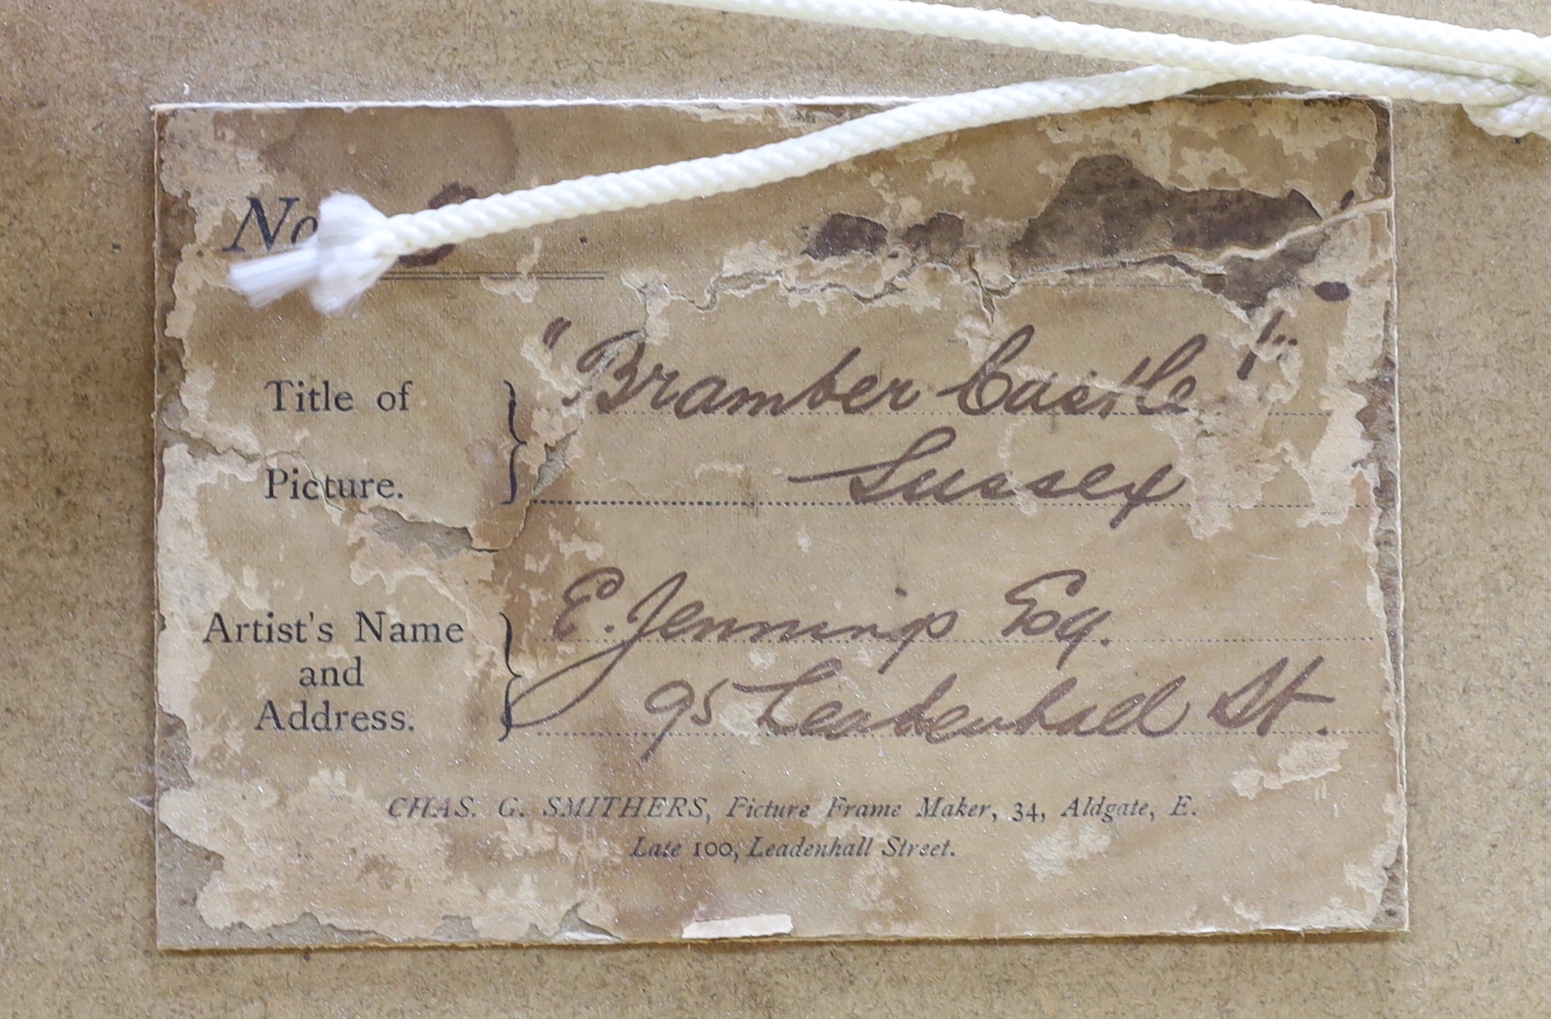 No
Title of Picture. } "Bramber Castle"
Sussex
Artist's Name and Address. } E. Jennings Esq.
95 Leadenhall St.
CHAS. G. SMITHERS, Picture Frame Maker, 34, Aldgate, E.
Late 100, Leadenhall Street.